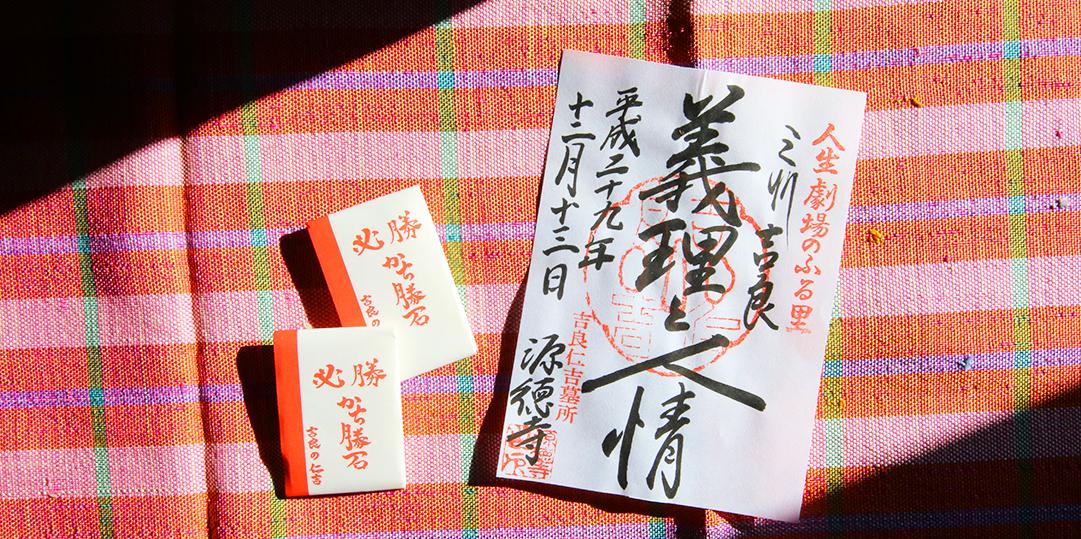 人生劇場のふる里
三州
吉良
義理と人情
平成二十九年
十二月十三日
吉良仁吉墓所
源徳寺
必勝
かち勝石
吉良の
必勝
かち勝石
吉良の仁吉